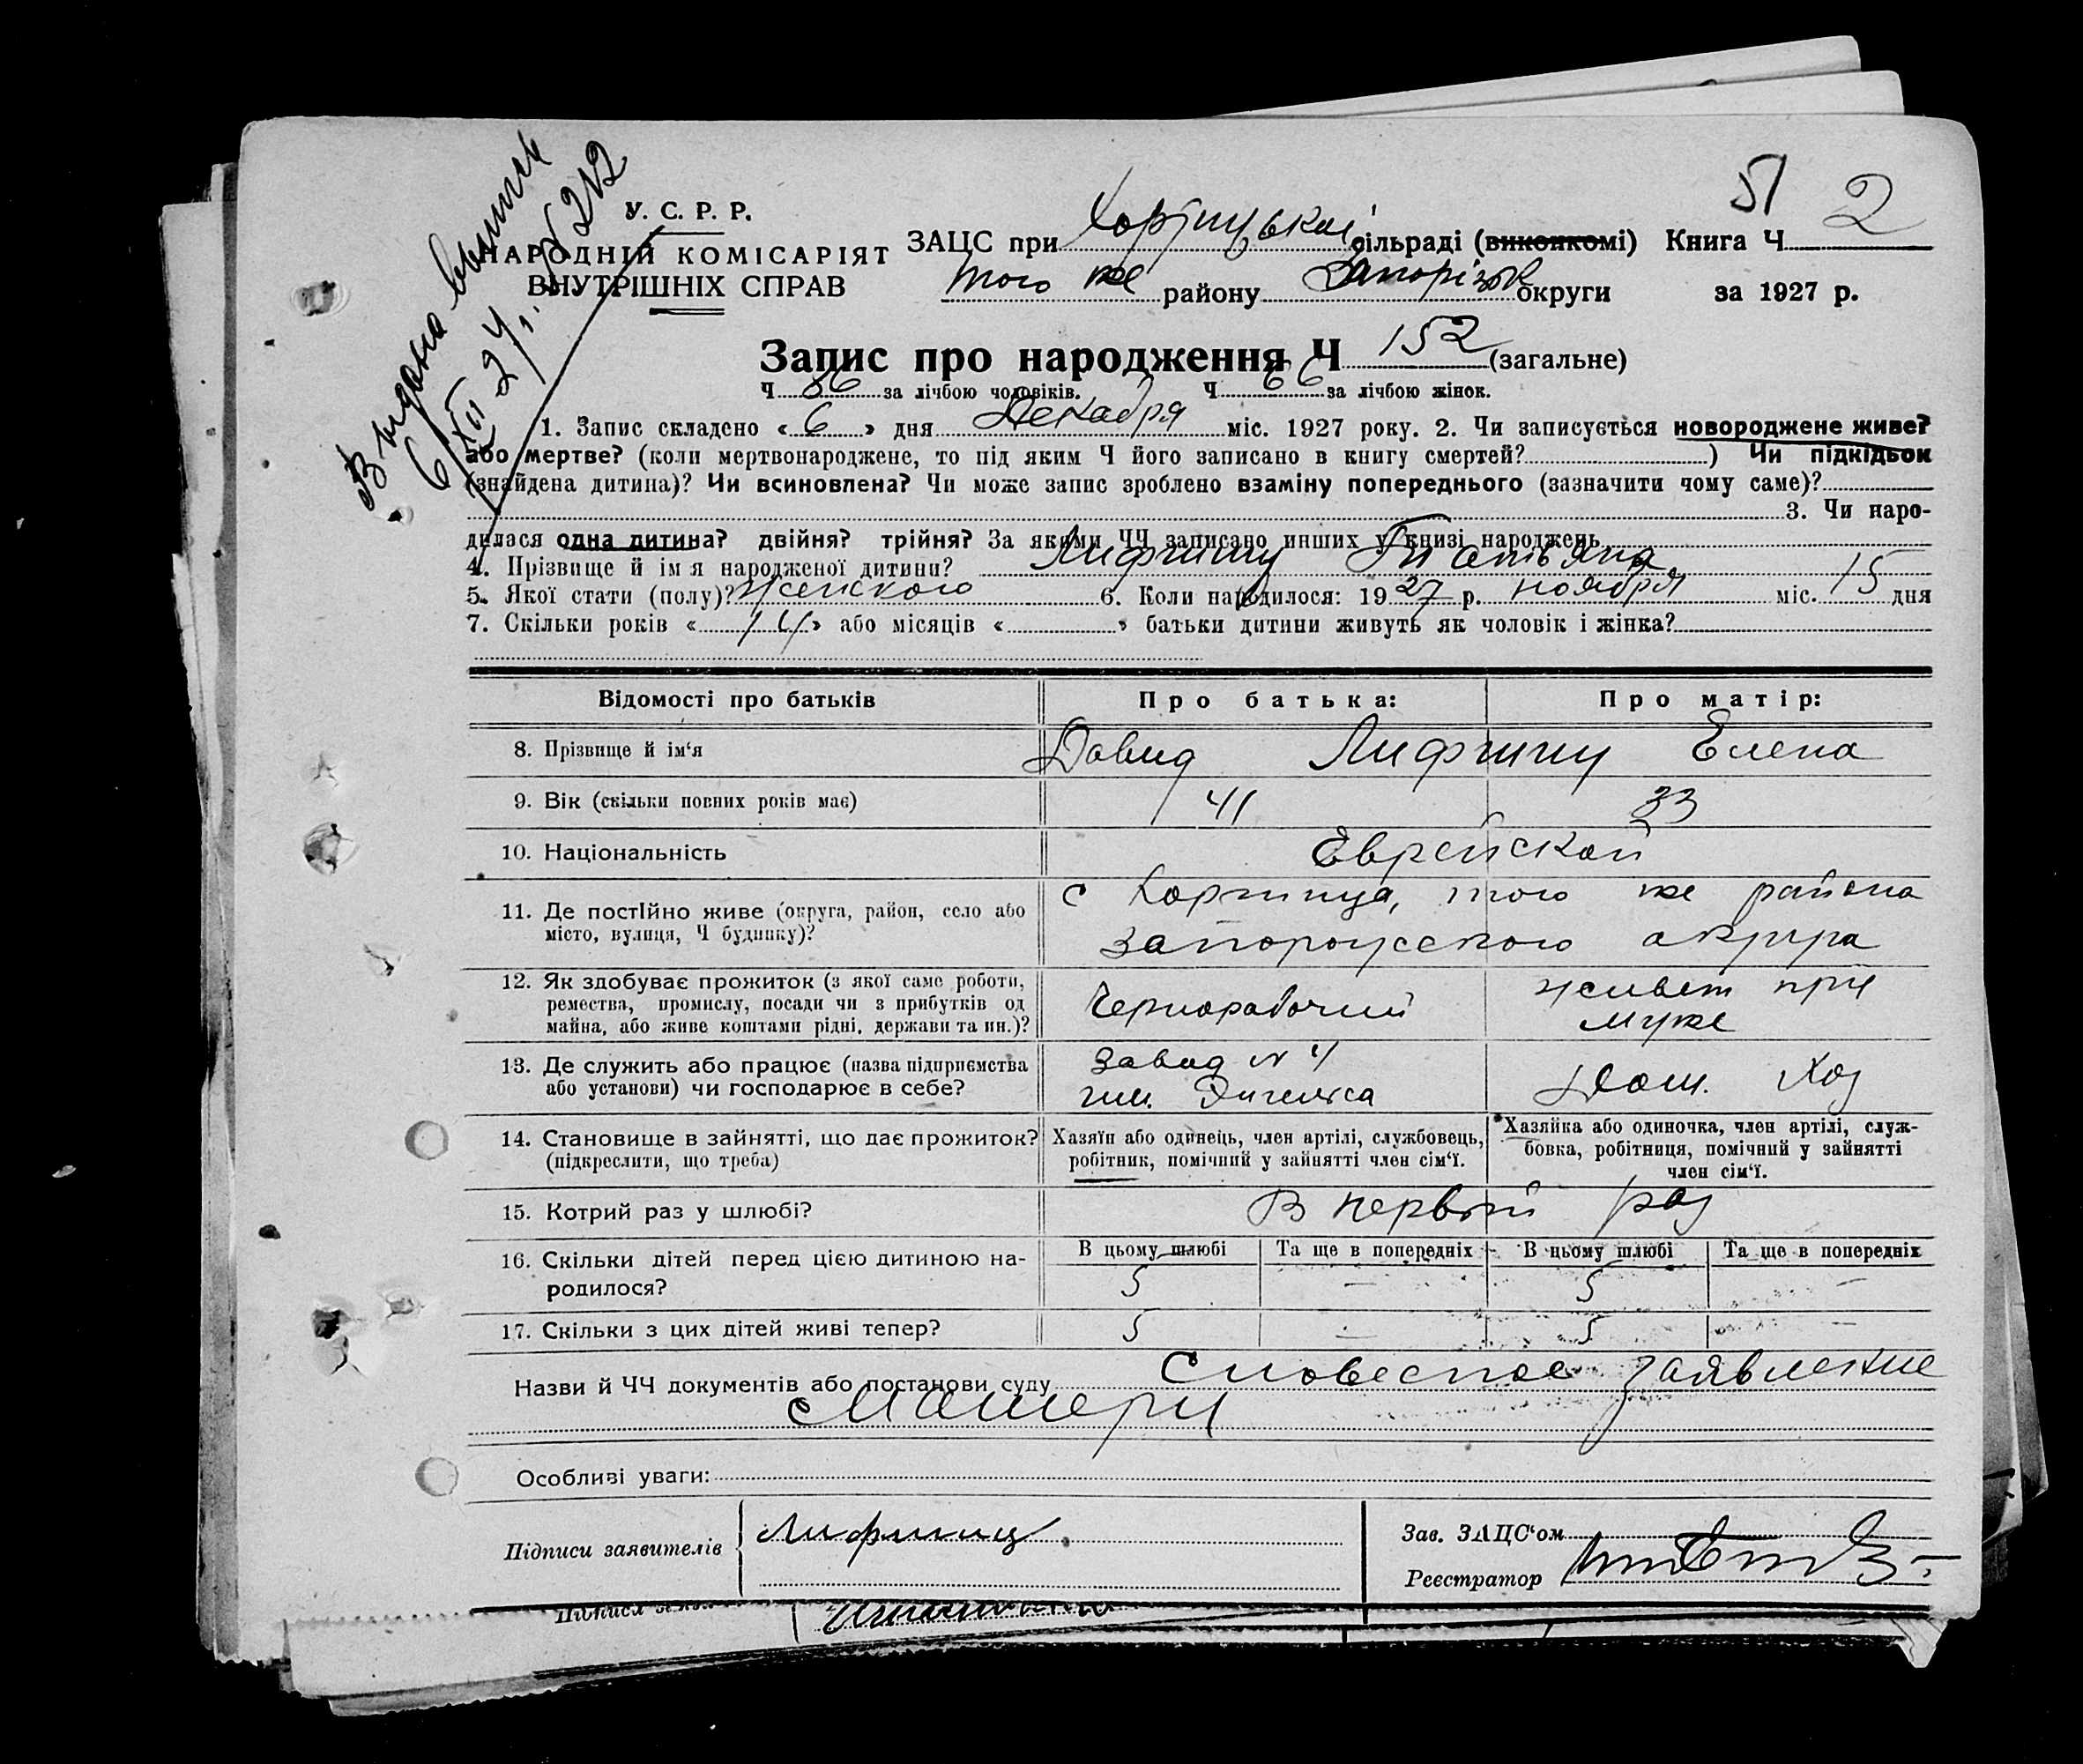 Видана выпись
6/XII-27 г. № 212
51
У. С. Р. Р.
НАРОДНІЙ КОМІСАРІЯТ
ВНУТРІШНІХ СПРАВ
ЗАЦС при Хортицькой сільраді (виконкомі) Книга Ч 2
того же району Запорізьк округи за 1927 р.
Запис про народження Ч 152 (загальне)
Ч 86 за лічбою чоловіків. Ч 66 за лічбою жінок.
1. Запис складено « 6 » дня Декабря міс. 1927 року. 2. Чи записується новороджене живе?
або мертве? (коли мертвонароджене, то під яким Ч його записано в книгу смертей? ) Чи підкідьок
(знайдена дитина)? Чи всиновлена? Чи може запис зроблено взаміну попереднього (зазначити чому саме)?
3. Чи наро-
дилася одна дитина? двійня? трійня? За якими ЧЧ записано инших у книзі народжень
4. Прізвище й ім'я народженої дитини? Лифшиц
5. Якої стати (полу)? женского 6. Коли народилося: 1927 р. ноября міс. 15 дня
7. Скільки років « 14 » або місяців « » батьки дитини живуть як чоловік і жінка?
Відомості про батьків Про батька: Про матір:
8. Прізвище й ім'я Давид Лифшиц Елена
9. Вік (скільки повних років має) 41 33
10. Національність Еврейской
11. Де постійно живе (округа, район, село або
місто, вулиця, Ч будинку)?
с Хортица, того же района
Запорожского округа
12. Як здобуває прожиток (з якої саме роботи,
ремества, промислу, посади чи з прибутків од
майна, або живе коштами рідні, держави та ин.)?
Чернорабочий
живет при
муже
13. Де служить або працює (назва підприємства
або установи) чи господарює в себе?
Завод № 4
им. Энгельса
Дом. Хоз
14. Становище в зайнятті, що дає прожиток?
(підкреслити, що треба)
Хазяїн або одинець, член артілі, службовець,
робітник, помічний у зайнятті член сім'ї.
Хазяйка або одиночка, член артілі, служ-
бовка, робітниця, помічний у зайнятті
член сім'ї.
15. Котрий раз у шлюбі? В первый раз
16. Скільки дітей перед цією дитиною на-
родилося?
В цьому шлюбі Та ще в попередніх В цьому шлюбі Та ще в попередніх
5 — 5 —
17. Скільки з цих дітей живі тепер? 5 — 5 —
Назви й ЧЧ документів або постанови суду Словесное заявление
Матери
Особливі уваги:
Підписи заявителів Лифшиц
Зав. ЗАЦС'ом
Реєстратор